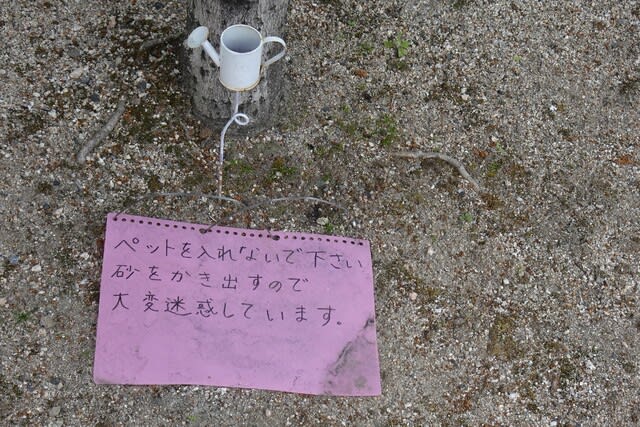 ペットを入れないで下さい
砂をかき出すので
大変迷惑しています。